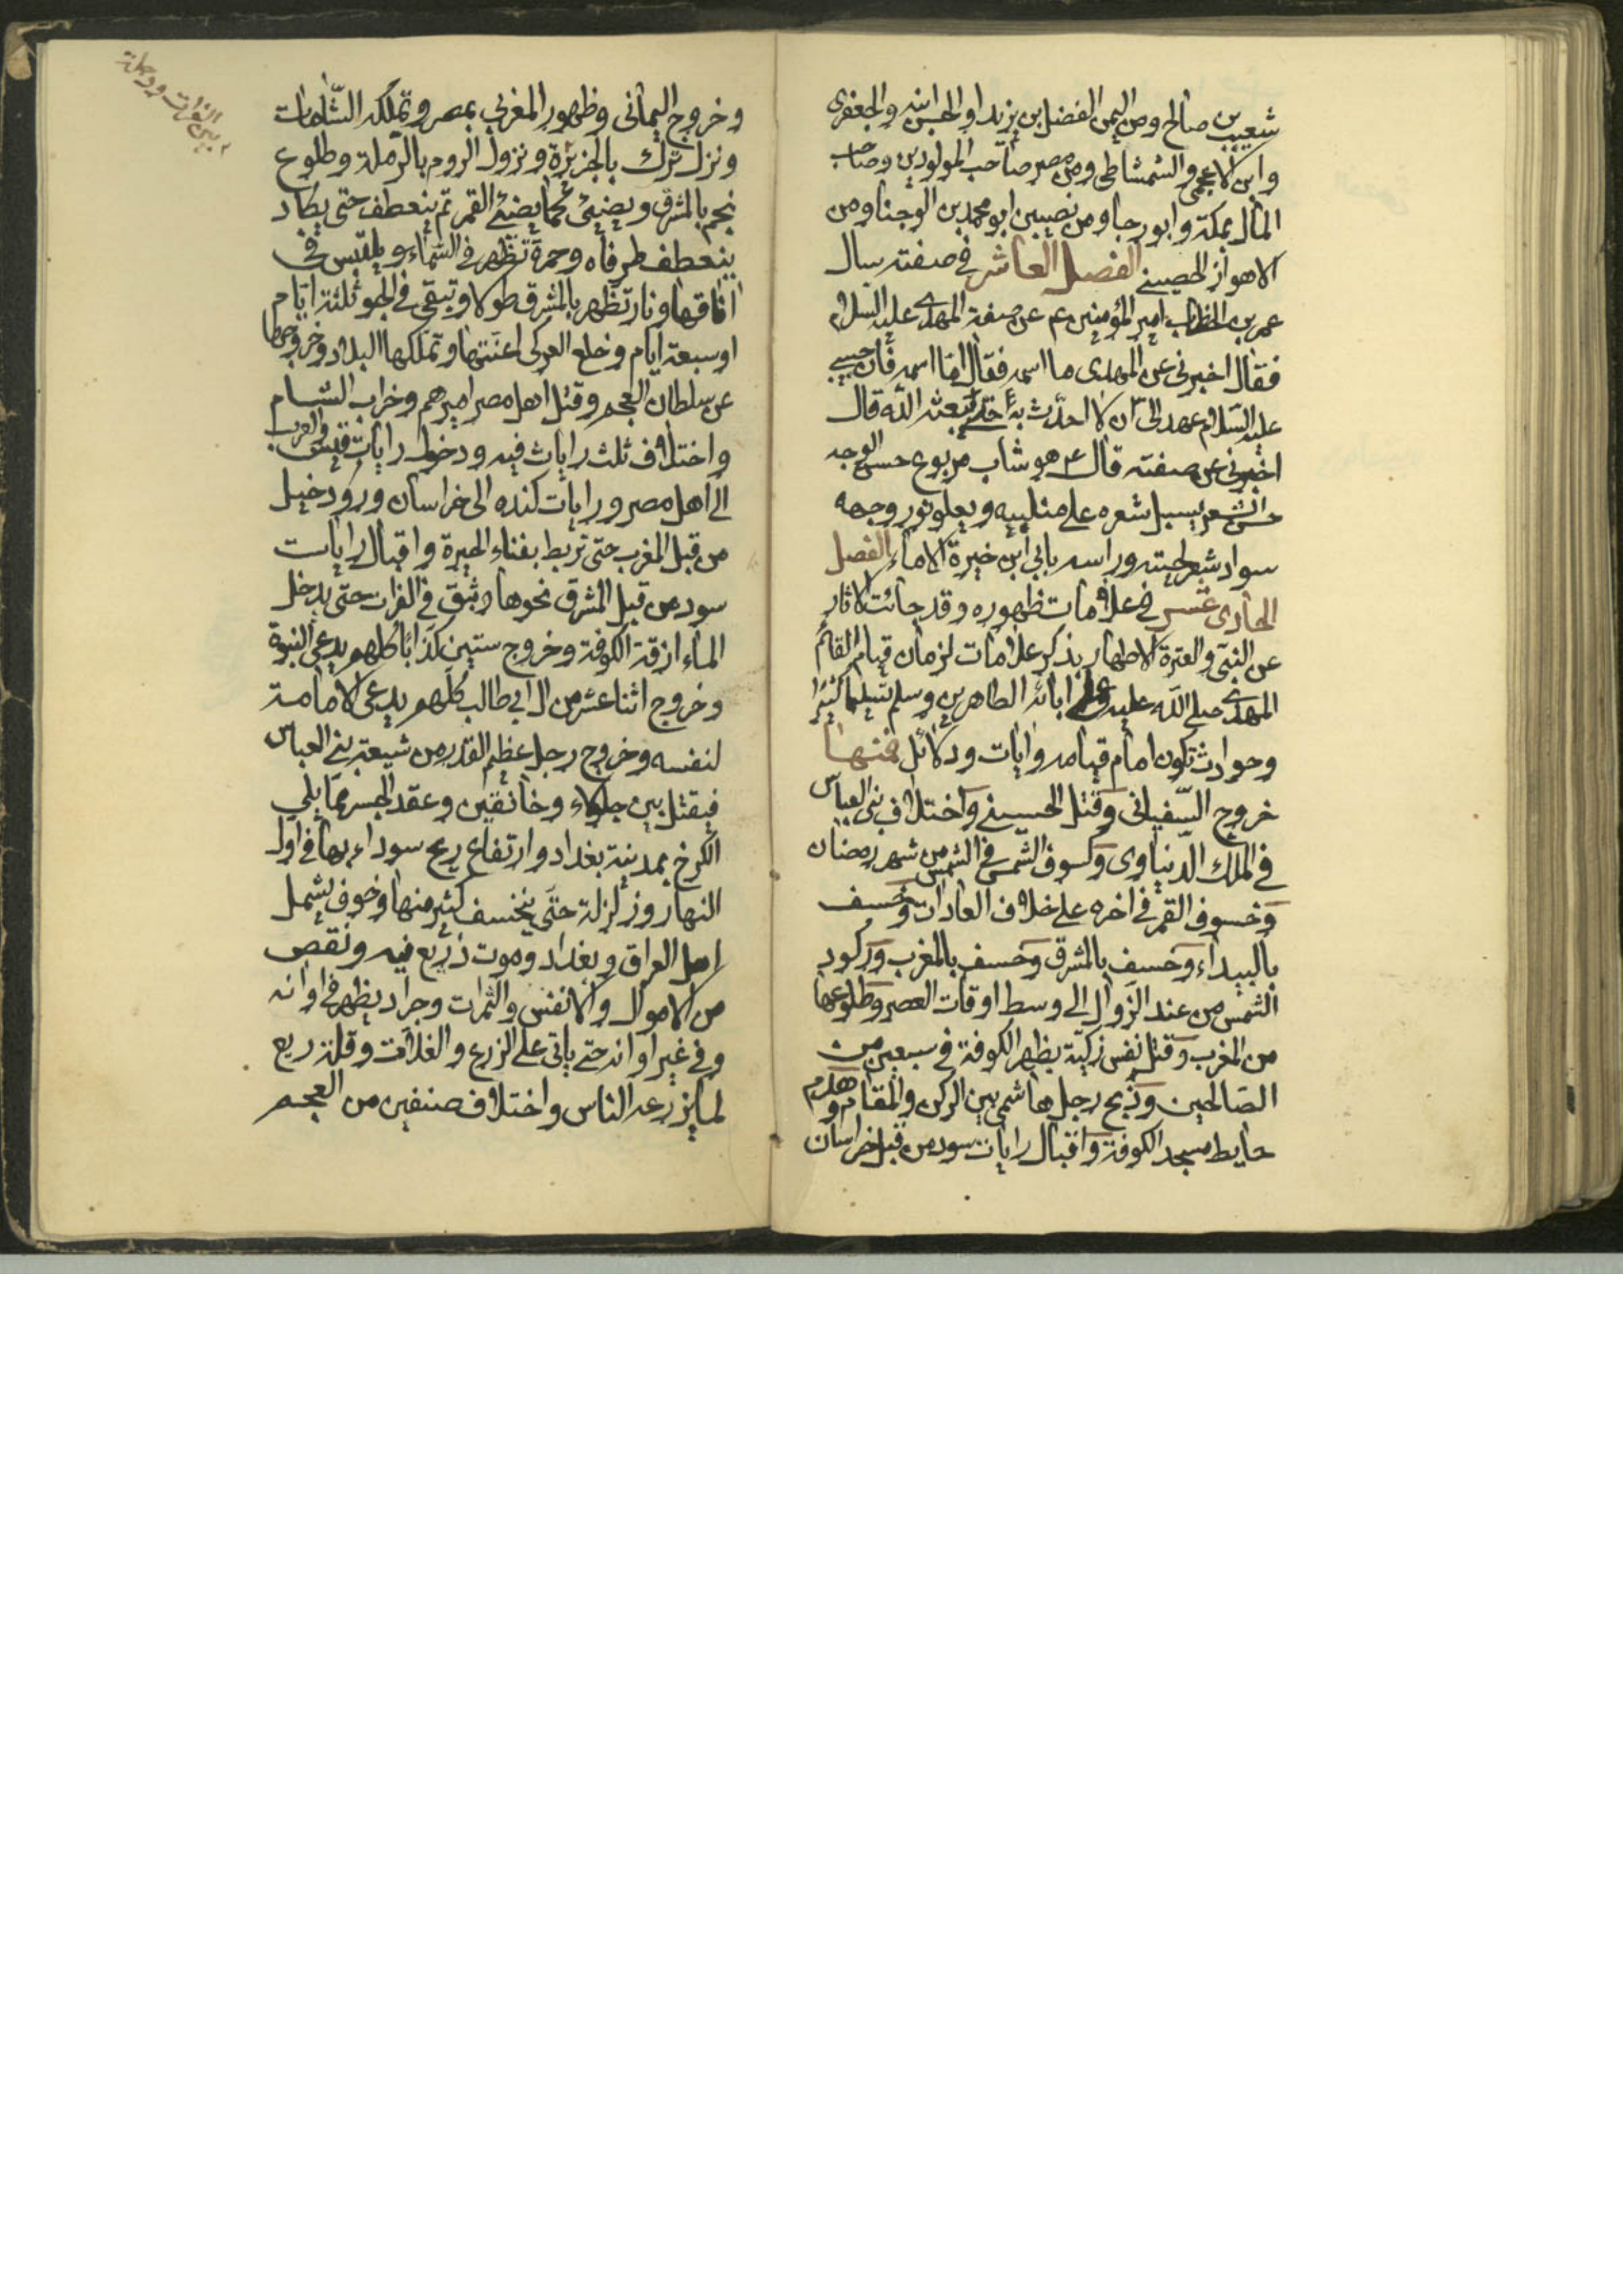 شعيب بن صالح ومن اليمن الفضل بن يزيد او الحسن ابنه والجعفرى
وابن الاعجمى والشمشاطى ومن مصر صاحب المولودين وصاحب
المال بمكة وابو رجا ومن نصيبين ابو محمد بن الوجنا ومن
الاهواز الحصينى الفصل العاشر فى صفته سال
عمر بن الخطاب امير المؤمنين ع عن صفة المهدى عليه السلام
فقال اخبرنى عن المهدى ما اسمه فقال اما اسمه فان حبيبى
عليه السلام عهد الى ان لا احدث به حتى يبعثه الله قال
اخبرنى عن صفته قال ع هو شاب مربوع حسن الوجه
حسن الشعر يسيل شعره على منكبيه ويعلو نور وجهه
سواد شعر لحيته وراسه بابى ابن خيرة الاماء الفصل
الحادى عشر فى علامات ظهوره وقد جائت الاثار
عن النبى والعترة الاطهار بذكر علامات لزمان قيام القائم
المهدى صلى الله عليه وعلى ابائه الطاهرين وسلم تسليما كثيرا
وحوادث تكون امام قيامه وايات ودلائل فمنها
خروج السفيانى وقتل الحسينى واختلاف بنى العباس
فى الملك الدنياوى وكسوف الشمس فى الشمس من شهر رمضان
وخسوف القمر فى اخره على خلاف العادات وخسف
بالبيداء وخسف بالمشرق وخسف بالمغرب وركود
الشمس من عند الزوال الى وسط اوقات العصر وطلوعها
من المغرب وقتل نفس زكية بظهر الكوفة فى سبعين من
الصالحين وذبح رجل هاشمى بين الركن والمقام وهدم
حايط مسجد الكوفة واقبال رايات سود من قبل خراسان
وخروج اليمانى وظهور المغربى بمصر وتملكه الشامات
ونزل ترك بالجزيرة ونزول الروم بالرملة وطلوع
نجم بالمشرق ويضيئ كما يضيئ القمر ثم ينعطف حتى يكاد
ينعطف طرفاه وحمرة تظهر فى السماء ويلتبس فى
افاقها ونار تظهر بالمشرق طولا وتبقى فى الجو ثلثة ايام
او سبعة ايام وخلع العرب اعنتها وتملكها البلاد وخروجها
عن سلطان العجم وقتل اهل مصر اميرهم وخراب الشام
واختلاف ثلث رايات فيه ودخول رايات قيس والعرب
الى اهل مصر ورايات كنده الى خراسان وورود خيل
من قبل المغرب حتى تربط بفناء الحيرة واقبال رايات
سود من قبل المشرق نحوها وبثق فى الفرات حتى يدخل
الماء ازقة الكوفة وخروج ستين كذابا كلهم يدعى النبوة
وخروج اثنا عشر من ال ابى طالب كلهم يدعى الامامة
لنفسه وخروج رجل عظيم القدر من شيعة بنى العباس
فيقتل بين جلولاء وخانقين وعقد الجسر مما يلى
الكرخ بمدينة بغداد وارتفاع ريح سوداء بها فى اول
النهار وزلزلة حتى ينخسف كثير منها وخوف يشمل
اهل العراق وبغداد وموت ذريع فيه ونقص
من الاموال والانفس والثمرات وجراد يظهر فى اوانه
وفى غير اوانه حتى ياتى على الزرع والغلات وقلة ريع
لما يزرعه الناس واختلاف صنفين من العجم
بين الفرات ودجلة